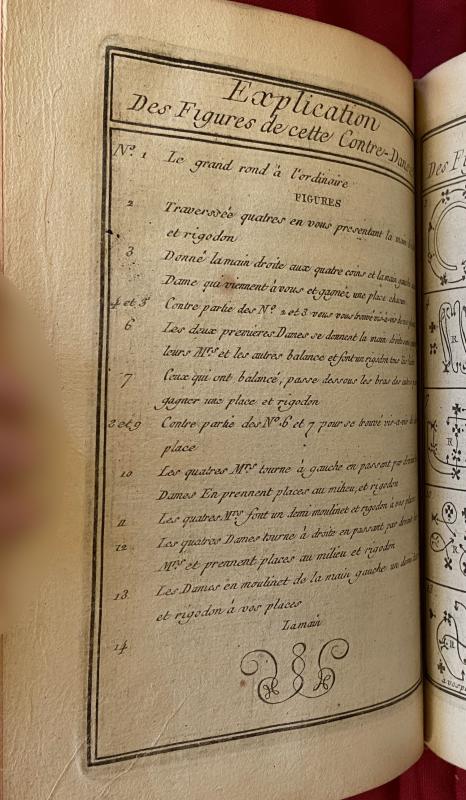 Explication
Des Figures de cette Contre-Dans
Nº. 1 Le grand rond à l'ordinaire
FIGURES
2 Traverssée quatres en vous présentant la main
et rigodon
3 Donné la main droite aux quatre coins et la main gauche
Dame qui viennent à vous et gagnez une place chacun
4 et 5 Contre partie des Nº. 2 et 3 vous vous trouvé vis-à-vis
6 Les deux premieres Dames se donnent la main droite
leurs Mrs et les autres balance et font un rigodon tous
7 Ceux qui ont balancé, passe dessous les bras des autres
gagner une place et rigodon
8 et 9 Contre partie des Nº. 6 et 7 pour se trouvé vis-a-vis
place
10 Les quatres Mrs tourne à gauche en passant par
Dames En prennent places au milieu, et rigodon
11 Les quatres Mrs font un demi moulinet et rigodon à vos places
12 Les quatres Dames tourne à droite en passant par devant
Mrs et prennent places au milieu et rigodon
13 Les Dames en moulinet de la main gauche un
et rigodon à vos places
14 Lamain
Des Fi
R
R
R
R
avosp